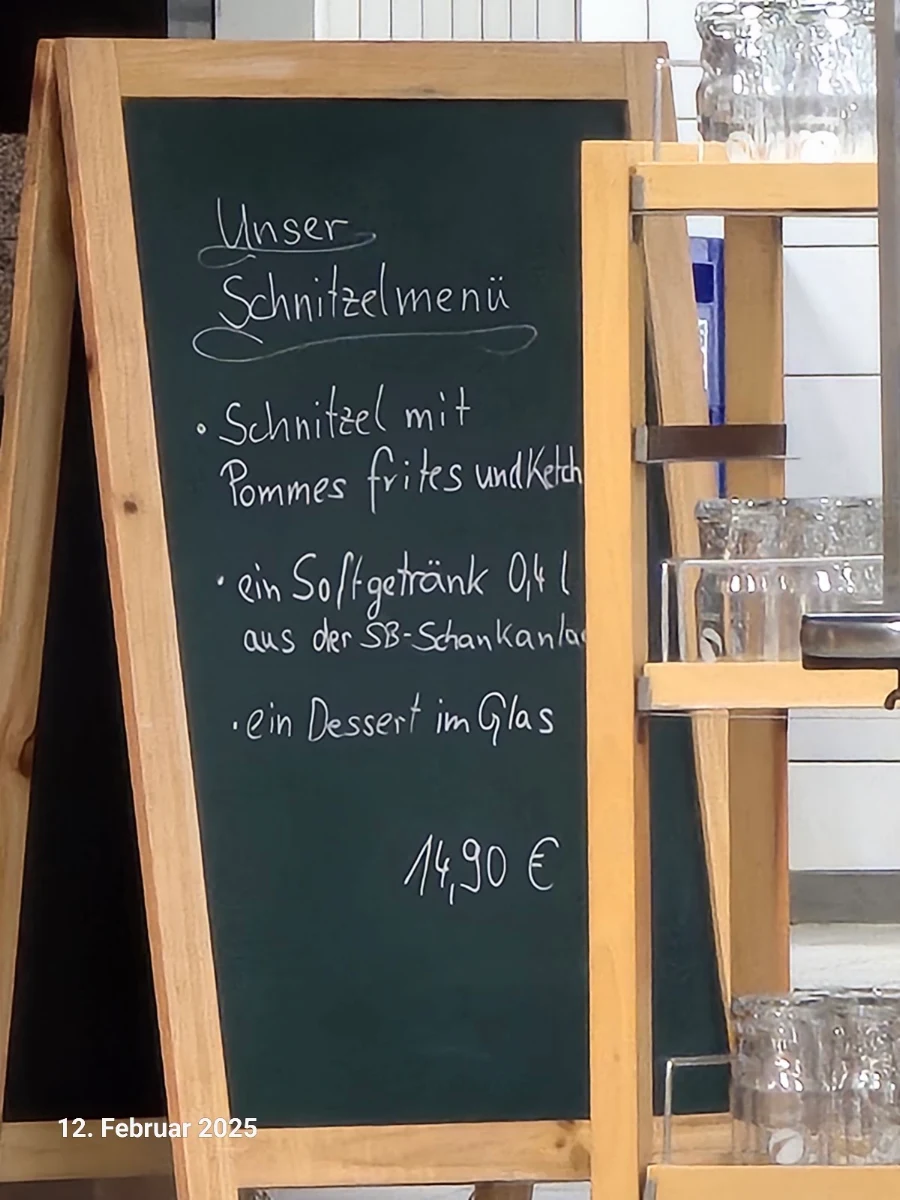 Unser
Schnitzelmenü
• Schnitzel mit
Pommes frites und Ketch
• ein Softgetränk 0,4 l
aus der SB-Schankanlag
• ein Dessert im Glas
14,90 €
12. Februar 2025